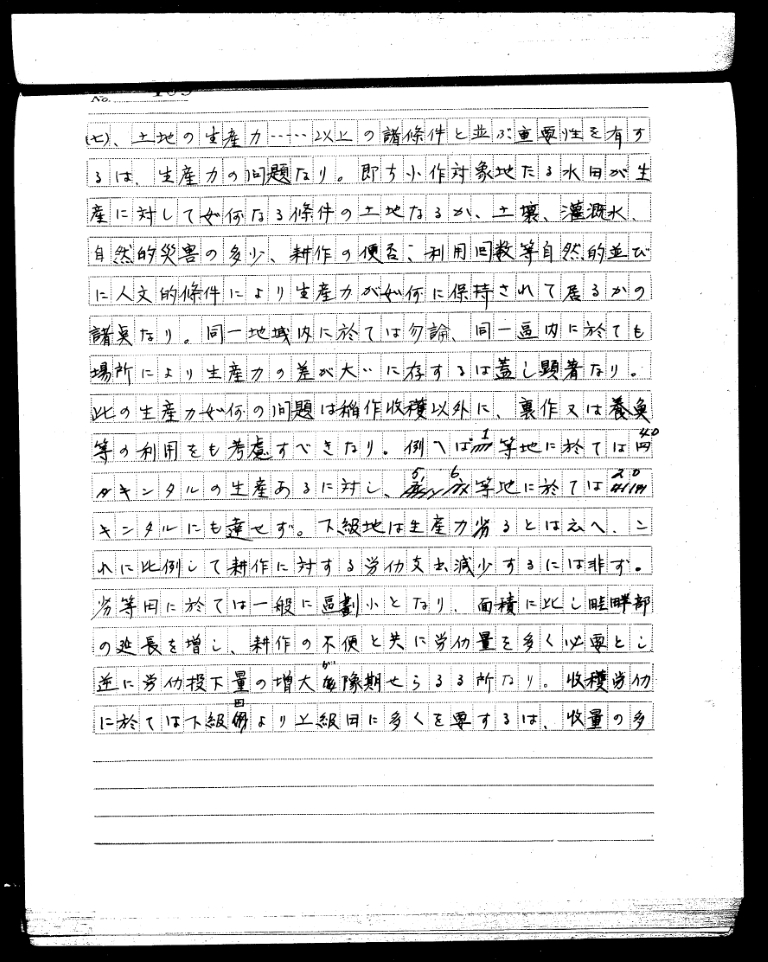 No.
(七)、土地の生産力……以上の諸條件と並ぶ重要性を有す
るは、生産力の問題なり。即ち小作対象地たる水田が生
産に対して如何なる條件の土地なるか、土壤、灌漑水、
自然的災害の多少、耕作の便否、利用回数等自然的並び
に人文的條件により生産力が如何に保持されて居るかの
諸点なり。同一地域内に於ては勿論、同一區内に於ても
場所により生産力の差が大いに存するは蓋し顕著なり。
此の生産力如何の問題は稲作收穫以外に、裏作又は養魚
等の利用をも考慮すべきなり。例へば1等地に於ては40
キンタルの生産あるに対し、5 6等地に於ては20
キンタルにも達せず。下級地は生産力劣るとは云へ、こ
れに比例して耕作に対する労仂支出減少するには非ず。
劣等田に於ては一般に區劃小となり、面積に比し畦畔部
の延長を増し、耕作の不便と共に労仂量を多く必要とし
逆に労仂投下量の増大が豫期せらるる所なり。收穫労仂
に於ては下級田より上級田に多くを要するは、收量の多